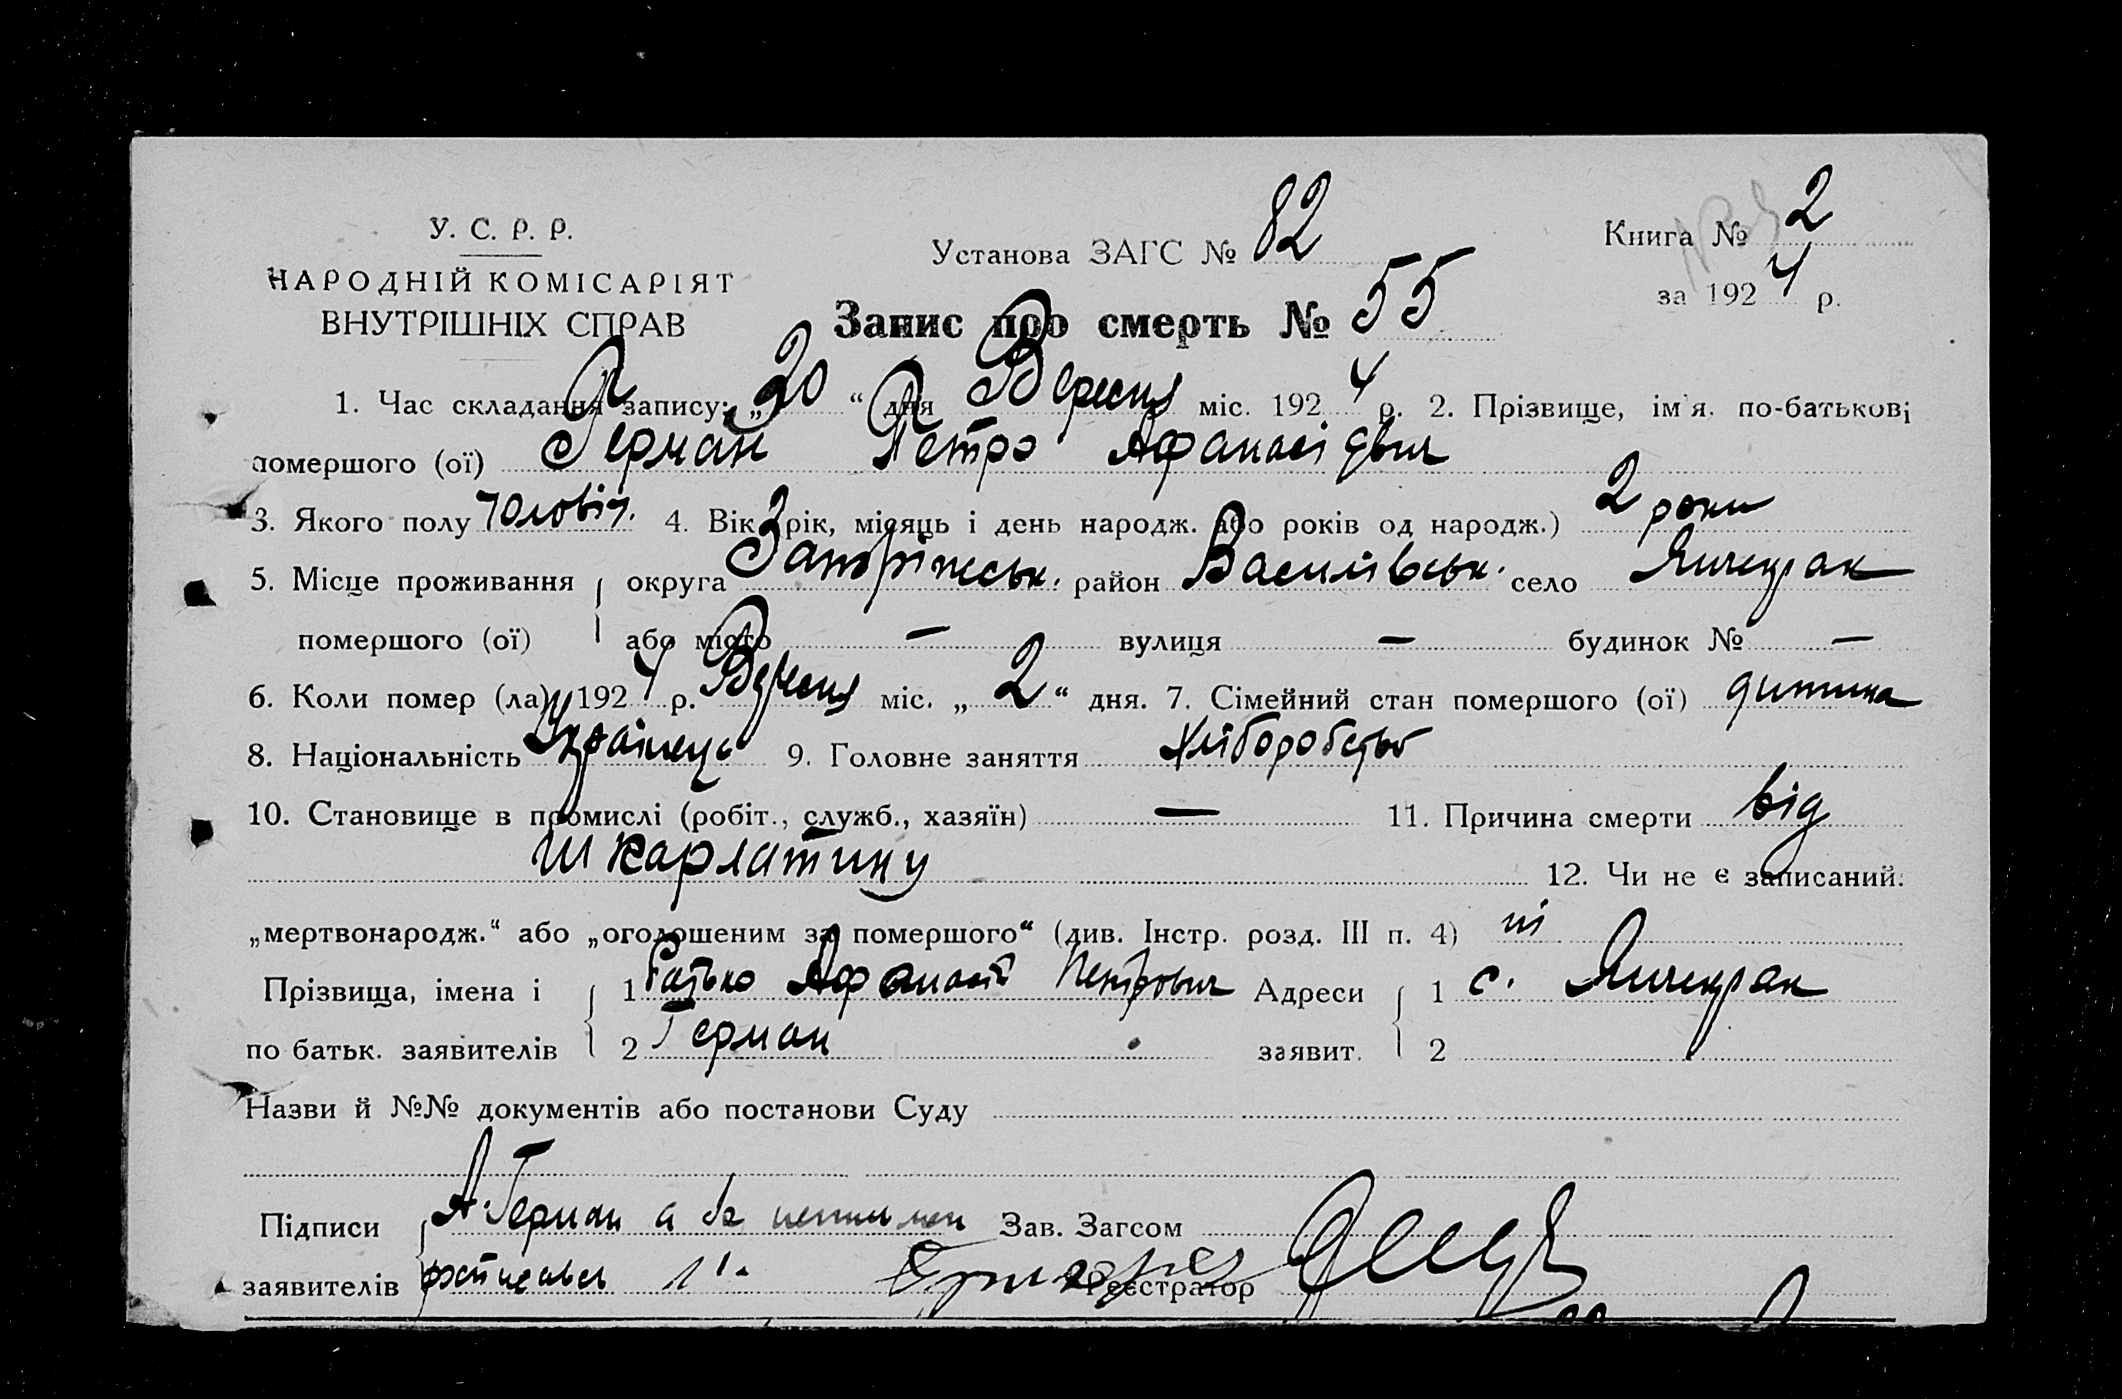 У. С. Р. Р.
НАРОДНІЙ КОМІСАРІЯТ
ВНУТРІШНІХ СПРАВ
Установа ЗАГС № 82
Книга № 2
за 1924 р.
Запис про смерть № 55
1. Час складання запису: „20“ дня Вересня міс. 1924 р. 2. Прізвище, ім'я, по-батькові
помершого (ої) Герман Петро Афанасієвич
3. Якого полу чоловіч. 4. Вік (рік, місяць і день народж. або років од народж.) 2 роки
5. Місце проживання округа Запоріжськ. район Василівськ. село Янчекрак
помершого (ої) або місто — вулиця — будинок № —
6. Коли помер (ла) 1924 р. Вересня міс. „2“ дня. 7. Сімейний стан помершого (ої) дитина
8. Національність Українець 9. Головне заняття хліборобство
10. Становище в промислі (робіт., служб., хазяїн) — 11. Причина смерти від
шкарлатину 12. Чи не є записаний:
„мертвонародж.“ або „оголошеним за помершого“ (див. Інстр. розд. III п. 4) ні
Прізвища, імена і 1 Батько Афанасій Петрович Адреси 1 с. Янчекрак
по батьк. заявителів 2 Герман заявит. 2
Назви й №№ документів або постанови Суду
Підписи А. Герман а за Зав. Загсом
заявителів Реєстратор